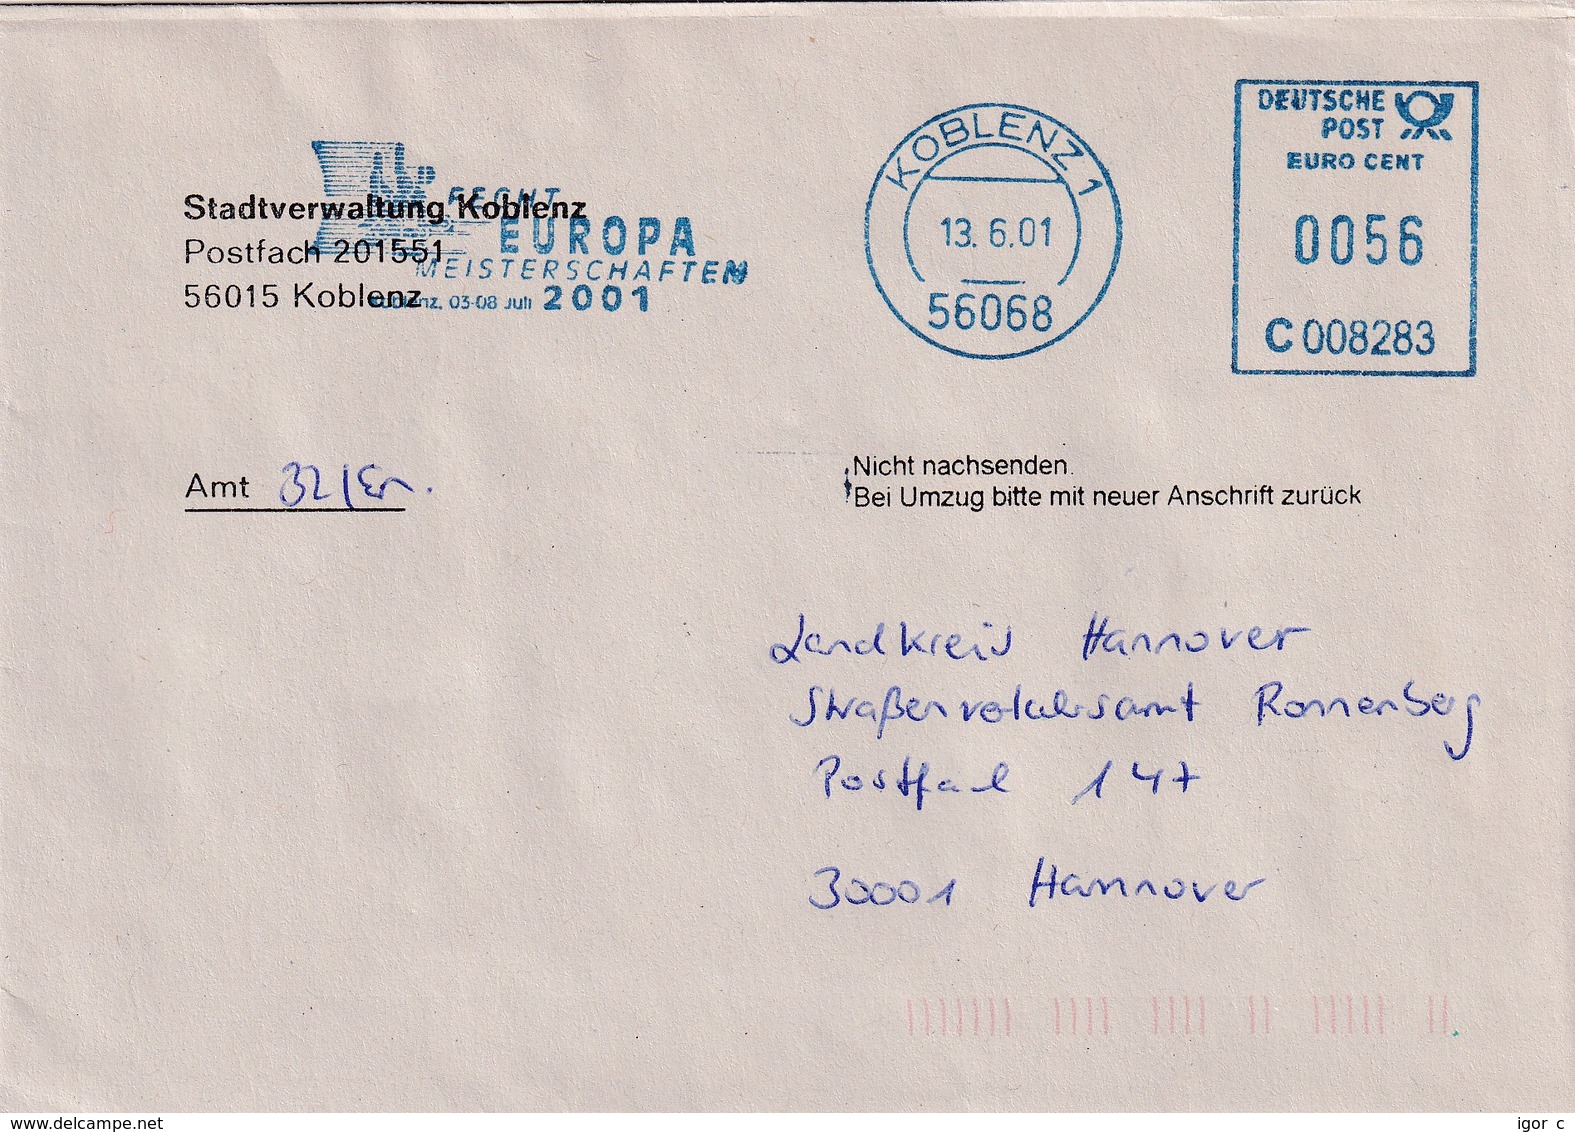 FECHT
EUROPA
MEISTERSCHAFTEN
Koblenz, 03-08 Juli 2001
Stadtverwaltung Koblenz
Postfach 201551
56015 Koblenz
KOBLENZ 1
13.6.01
56068
DEUTSCHE
POST
EURO CENT
0056
C008283
Amt 32/En.
Nicht nachsenden.
Bei Umzug bitte mit neuer Anschrift zurück
Landkreis Hannover
Straßenverkehrsamt Ronnenberg
Postfach 147
30001 Hannover
delcampe.net
igor c